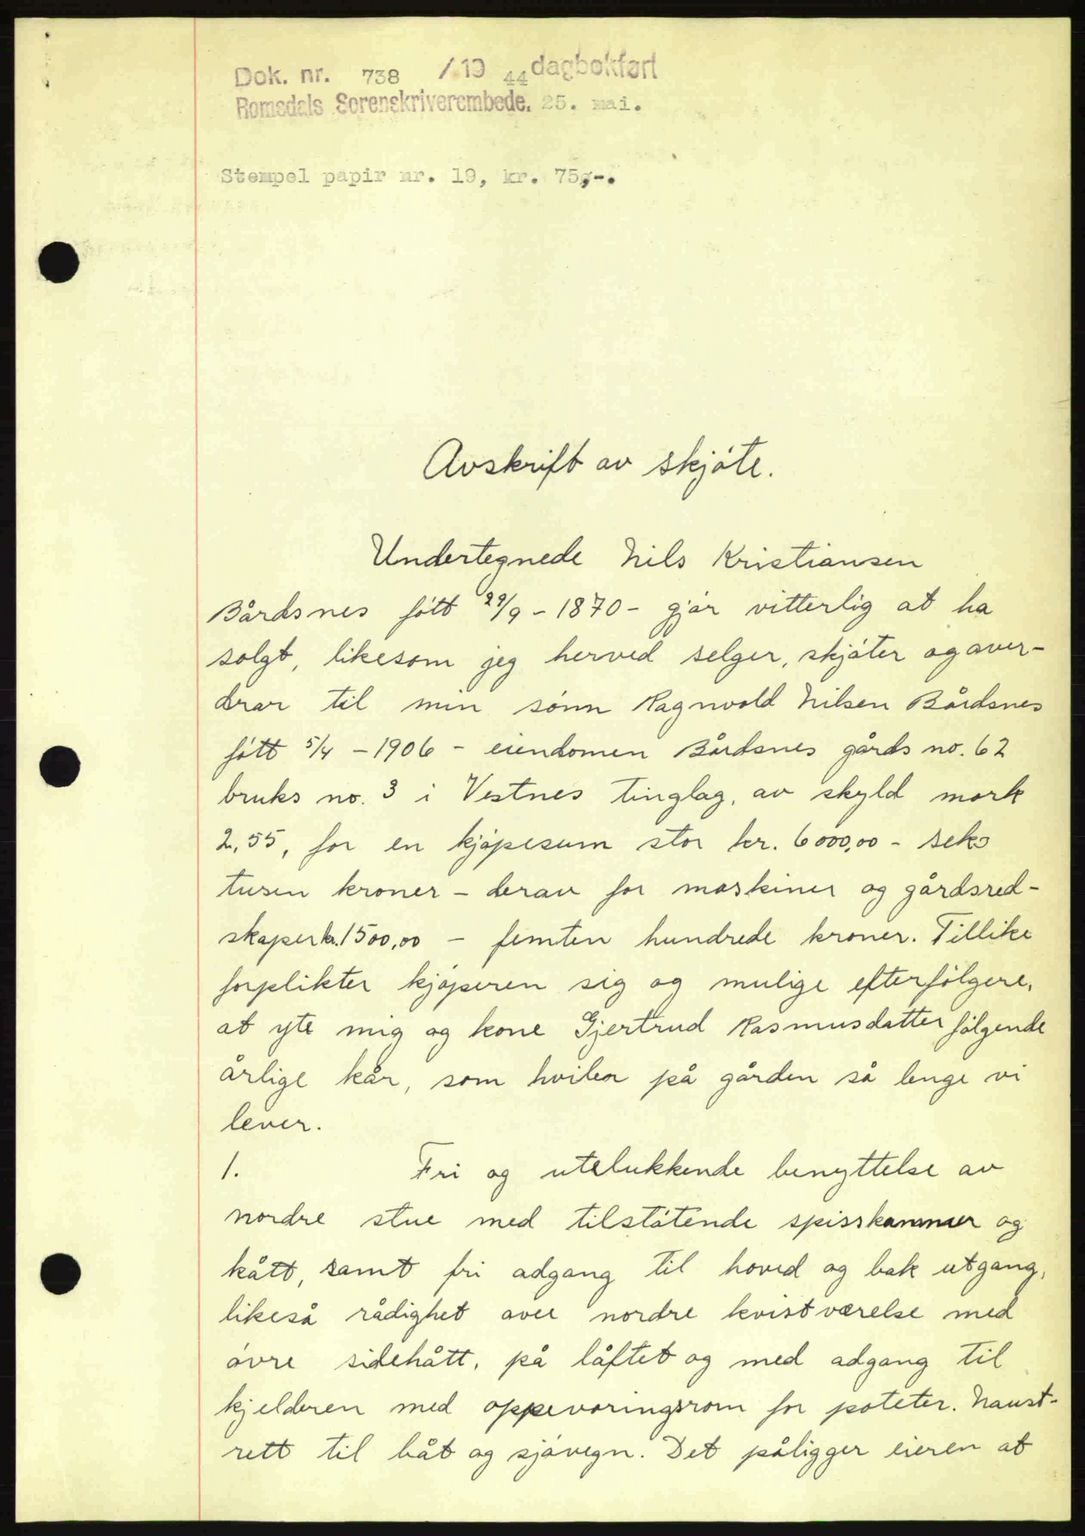 Dok. nr. 738 /19 44 dagbokført
Romsdals Sorenskriverembede. 25. mai.
Stempel papir nr. 19, kr. 75,-.
Avskrift av skjöte.
Undertegnede Nils Kristiansen
Bårdsnes fött 29/9 - 1870 - gjör vitterlig at ha
solgt, likesom jeg herved selger, skjöter og över-
drar til min sönn Ragnvald Nilsen Bårdsnes
fött 5/4 - 1906 - eiendomen Bårdsnes gårds no. 62
bruks no. 3 i Vestnes tinglag, av skyld mark
2,55, for en kjöpesum stor kr. 6000,00 - seks
tusen kroner - derav for maskiner og gårdsred-
skaper kr. 1500,00 - femten hundrede kroner. Tillike
forplikter kjöperen sig og mulige efterfölgere,
at yte mig og kone Gjertrud Rasmusdatter fölgende
årlige kår, som hviler på gården så lenge vi
lever.
1. Fri og utelukkende benyttelse av
nordre stue med tilstötende spisskammer og
kått, samt fri adgang til hoved og bak utgang,
likeså rådighet over nordre kvistværelse med
övre sidekått, på låftet og med adgang til
kjelderen med oppevaringsrom for poteter. Naust-
rett til båt og sjövegn. Det påligger eieren at